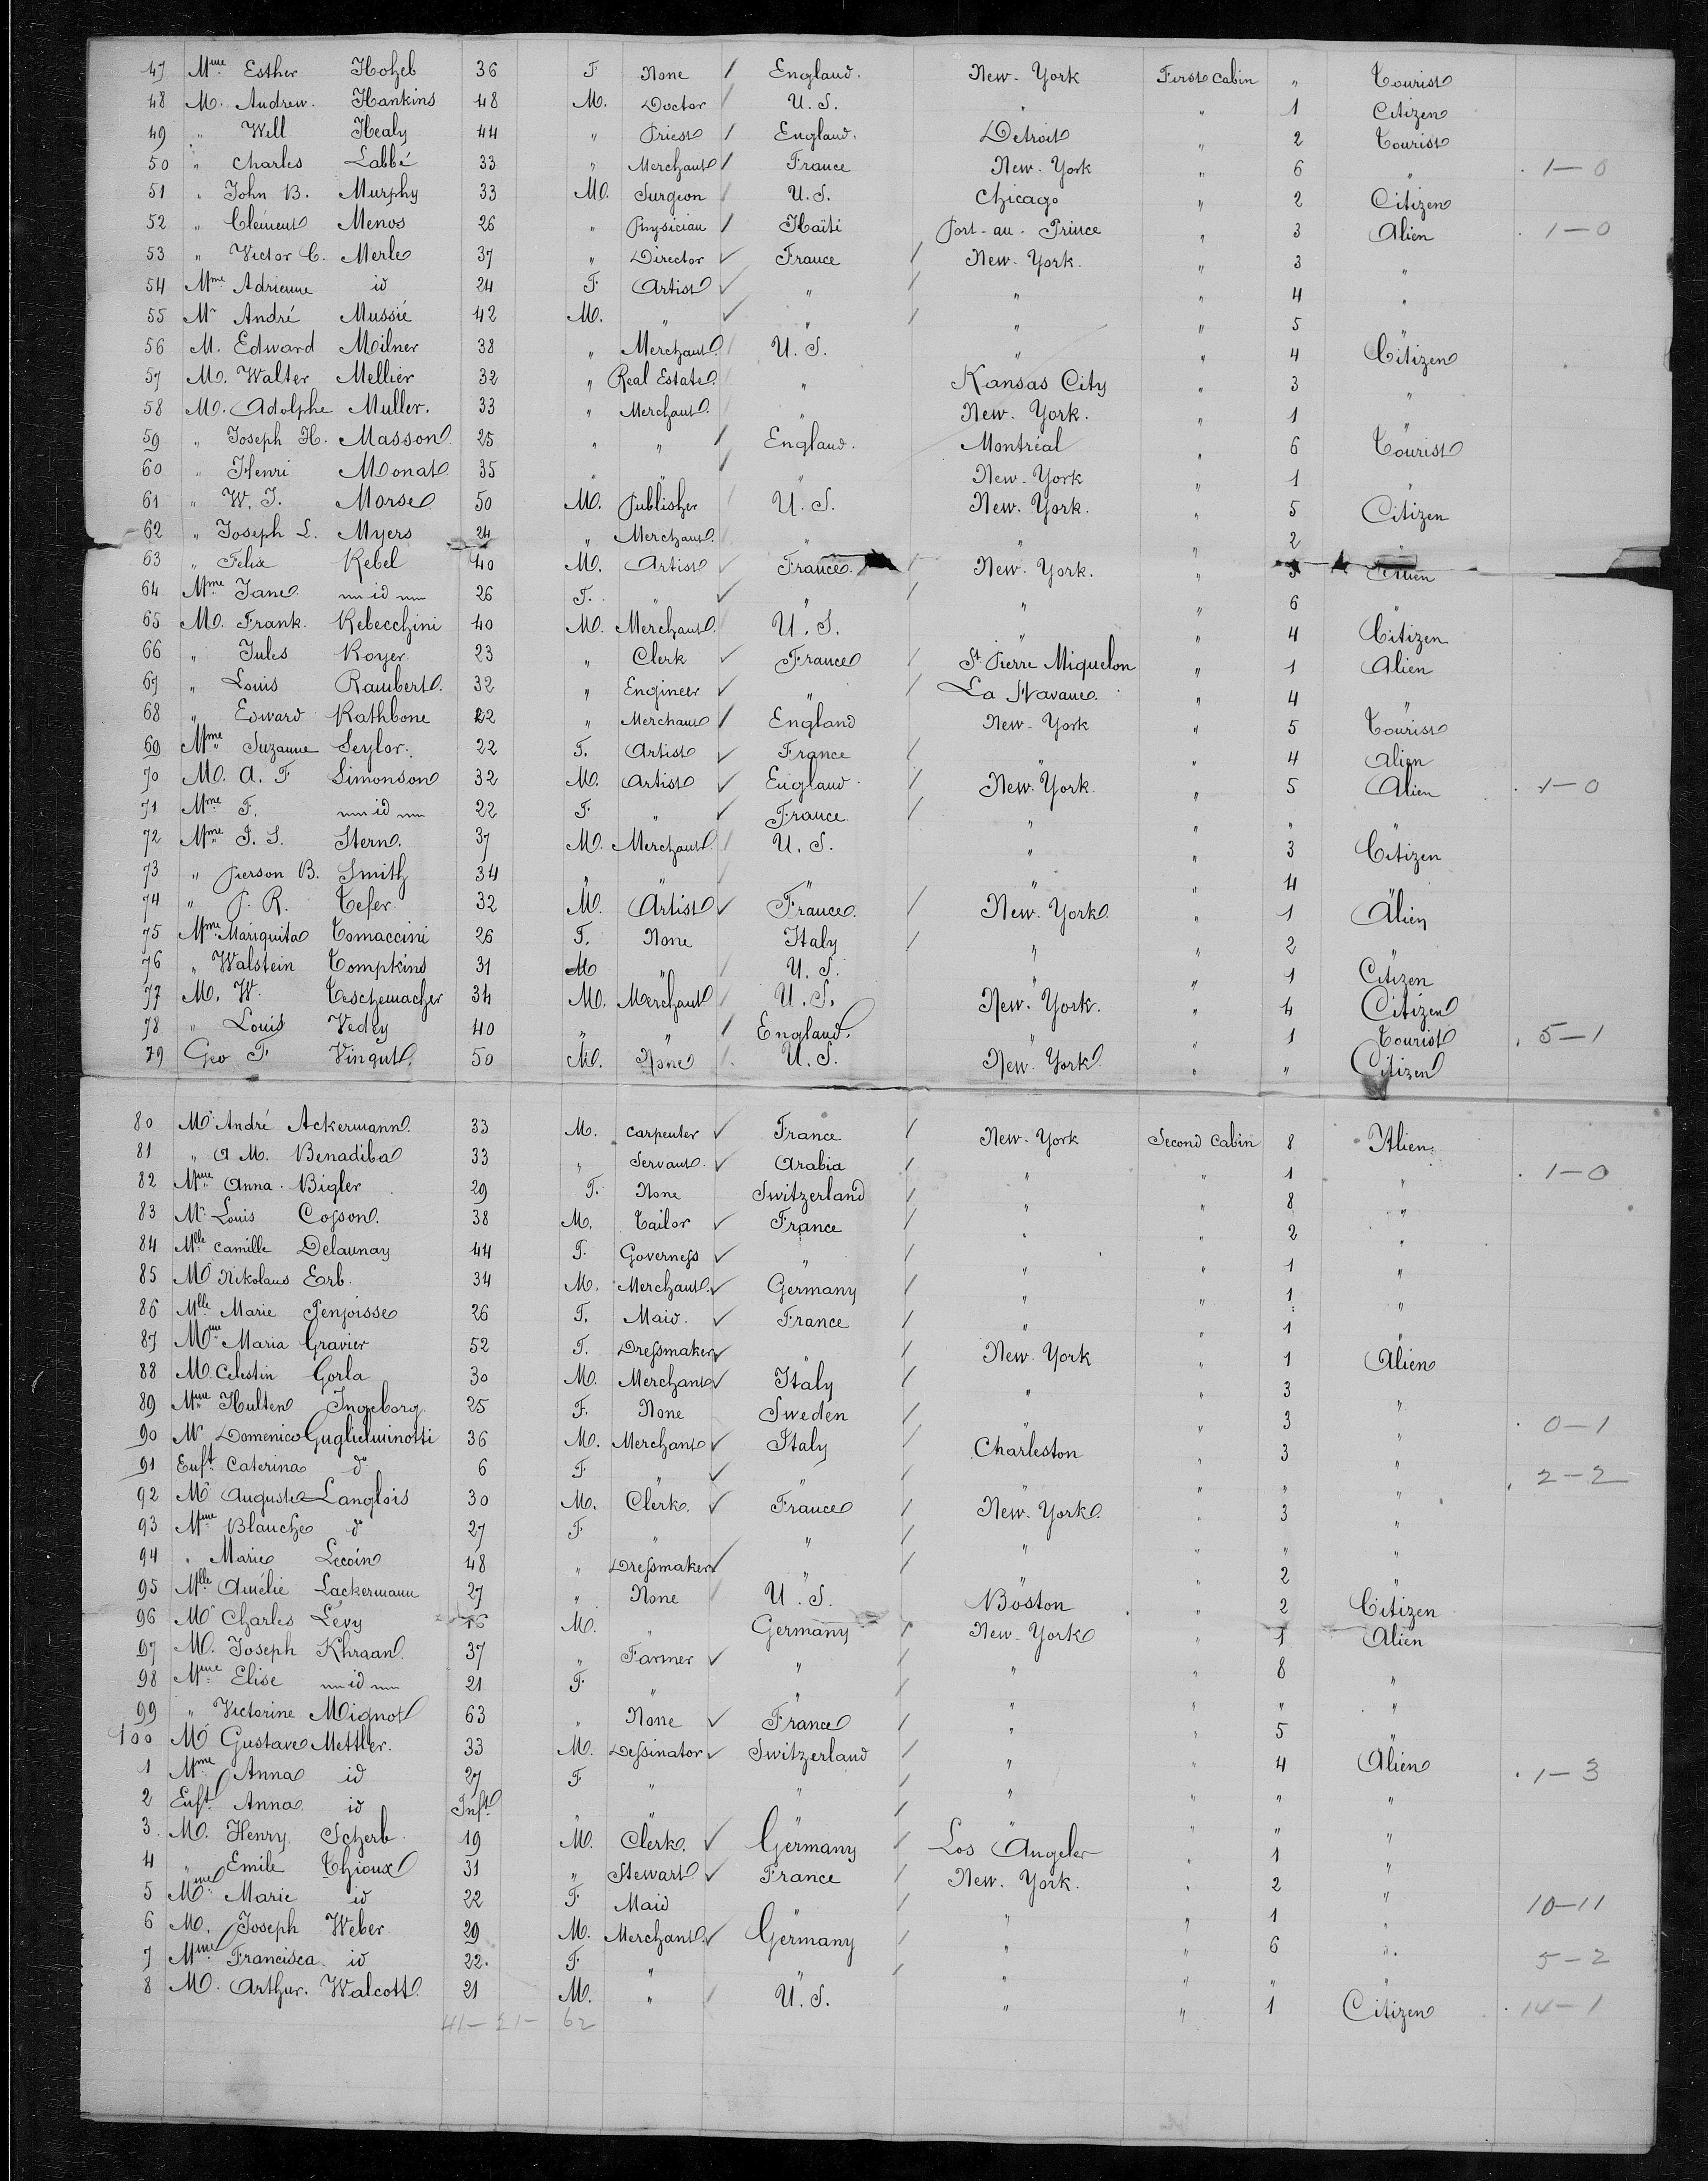 47 Mme Esther Hoheb 36 F. None / England. New-York First cabin " Tourist
48 M. Andrew. Hankins 48 M. Doctor / U.S. " " 1 Citizen
49 " Will Healy 44 " Priest / England. Detroit " 2 Tourist
50 " Charles Labbé 33 " Merchant / France New-York " 6 " 1-0
51 " John B. Murphy 33 M. Surgeon / U.S. Chicago " 2 Citizen
52 " Clément Menos 26 " Physician / Haïti Port-au-Prince " 3 Alien 1-0
53 " Victor C. Merle 37 " Director ✓ France / New-York. " 3 "
54 Mme Adrienne id 24 F Artist ✓ " / " " 4 "
55 Mr André Mussié 42 M. " ✓ " / " " 5 "
56 M. Edward Milner 38 " Merchant / U.S. " " 4 Citizen
57 M. Walter Mellier 32 " Real Estate / " Kansas City " 3 "
58 M. Adolphe Muller. 33 " Merchant / " New-York. " 1 "
59 " Joseph H. Masson 25 " " / England. Montréal " 6 Tourist
60 " Henri Monat 35 " " / " New-York " 1 "
61 " W. J. Morse 50 M. Publisher / U.S. New-York. " 5 Citizen
62 " Joseph L. Myers 24 " Merchant / " " " 2 "
63 " Felix Rebel 40 M. Artist ✓ France / New-York. " 5 Alien
64 Mme Jane id 26 F. " ✓ " / " " 6 "
65 M. Frank. Rebecchini 40 M. Merchant / U.S. " " 4 Citizen
66 " Jules Royer 23 " Clerk ✓ France / St Pierre Miquelon " 1 Alien
67 " Louis Rambert 32 " Engineer ✓ " / La Havane. " 4 "
68 " Edward Rathbone 22 " Merchant / England New-York " 5 Tourist
69 Mme Suzanne Seylor. 22 F. Artist ✓ France / " " 4 Alien
70 M. A. F Simonson 32 M. Artist ✓ England / New-York " 5 Alien 1-0
71 Mme F. id 22 F " ✓ France / " " " "
72 Mme J. S. Stern. 37 M. Merchant / U.S. " " 3 Citizen
73 " Pierson B. Smith 34 " " / " " " 4 "
74 " P. R. Tefer 32 M. Artist ✓ France / New-York " 1 Alien
75 Mme Mariquita Tomaccini 26 F. None Italy / " " 2 "
76 " Walstein Tompkins 31 M " / U.S. " " 1 Citizen
77 M. W. Teschemacher 34 M. Merchant / U.S. New-York. " 4 Citizen
78 " Louis Vedey 40 " " / England. " " 1 Tourist 5-1
79 Geo F. Vingut 50 M. None / U.S. New-York " " Citizen
80 Mr André Ackermann 33 M. Carpenter ✓ France / New-York Second Cabin 8 Alien
81 " A M. Benadiba 33 " Servant ✓ Arabia / " " 1 " 1-0
82 Mme Anna. Bigler 29 F. None Switzerland / " " 8 "
83 Mr Louis Cosson. 38 M. Tailor ✓ France / " " 2 "
84 Mlle Camille Delaunay 44 F. Governess ✓ " / " " 1 "
85 Mr Nikolaus Erb. 34 M. Merchant ✓ Germany / " " 1 "
86 Mlle Marie Penjoisse 26 F. Maid. ✓ France / " " 1 "
87 Mme Maria Gravier 52 F. Dressmaker ✓ " / New-York " 1 Alien
88 M. Celestin Gorla 30 M. Merchant ✓ Italy / " " 3 "
89 Mme Hulten Ingeborg 25 F. None Sweden / " " 3 " 0-1
90 Mr Domenico Guglielminotti 36 M. Merchant ✓ Italy / Charleston " 3 "
91 Enft Caterina do 6 F " ✓ " / " " " " 2-2
92 Mr Auguste Langlois 30 M. Clerk. ✓ France / New-York " 3 "
93 Mme Blanche do 27 F " " / " " " "
94 " Marie Lecoin 48 " Dressmaker ✓ " / " " 2 "
95 Mlle Amélie Lackermann 27 " None / U.S. Boston " 2 Citizen
96 Mr Charles Lévy 16 M. " Germany / New-York " 1 Alien
97 M. Joseph Khraan 37 " Farmer ✓ " / " " 8 "
98 Mme Elise id 21 F. " " / " " " "
99 " Victorine Mignot 63 " None ✓ France / " " 5 "
100 Mr Gustave Mettler. 33 M. Dessinator ✓ Switzerland / " " 4 Alien
1 Mme Anna id 27 F " " / " " " " 1-3
2 Enft Anna id Inft " " " / " " " "
3 M. Henry Scherb 19 M. Clerk. ✓ Germany / Los Angeles " 1 "
4 " Emile Thioux 31 " Stewart ✓ France / New-York. " 2 "
5 Mme Marie id 22 F Maid " / " " 1 " 10-11
6 M. Joseph Weber 29 M. Merchant ✓ Germany / " " 6 "
7 Mme Francisca id 22. F " " / " " " " 5-2
8 M. Arthur. Walcott 21 M. " / U.S. " " 1 Citizen 14-1
41-21- 62